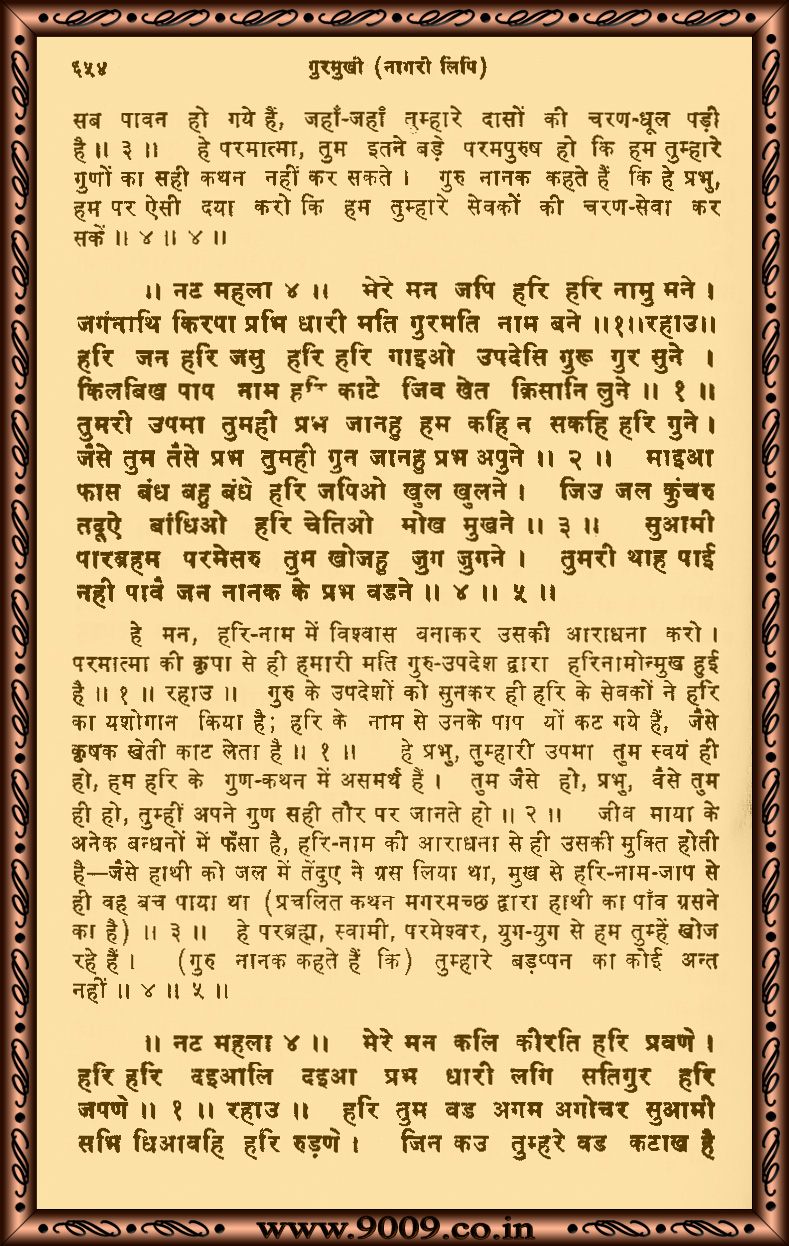 ६५४ गुरमुखी (नागरी लिपि)
सब पावन हो गये हैं, जहाँ-जहाँ तुम्हारे दासों की चरण-धूल पड़ी
है ॥ ३ ॥ हे परमात्मा, तुम इतने बड़े परमपुरुष हो कि हम तुम्हारे
गुणों का सही कथन नहीं कर सकते । गुरु नानक कहते हैं कि हे प्रभु,
हम पर ऐसी दया करो कि हम तुम्हारे सेवकों की चरण-सेवा कर
सकें ॥ ४ ॥ ४ ॥
॥ नट महला ४ ॥ मेरे मन जपि हरि हरि नामु मने ।
जगंनाथि किरपा प्रभि धारी मति गुरमति नाम बने ॥१॥रहाउ॥
हरि जन हरि जसु हरि हरि गाइओ उपदेसि गुरू गुर सुने ।
किलबिख पाप नाम हरि काटे जिव खेत क्रिसानि लुने ॥ १ ॥
तुमरी उपमा तुमही प्रभ जानहु हम कहि न सकहि हरि गुने ।
जैसे तुम तैसे प्रभ तुमही गुन जानहु प्रभ अपुने ॥ २ ॥ माइआ
फास बंध बहु बंधे हरि जपिओ खुल खुलने । जिउ जल कुंचरु
तदूऐ बांधिओ हरि चेतिओ मोख मुखने ॥ ३ ॥ सुआमी
पारब्रहम परमेसरु तुम खोजहु जुग जुगने । तुमरी थाह पाई
नही पावै जन नानक के प्रभ वडने ॥ ४ ॥ ५ ॥
हे मन, हरि-नाम में विश्वास बनाकर उसकी आराधना करो ।
परमात्मा की कृपा से ही हमारी मति गुरु-उपदेश द्वारा हरिनामोन्मुख हुई
है ॥ १ ॥ रहाउ ॥ गुरु के उपदेशों को सुनकर ही हरि के सेवकों ने हरि
का यशोगान किया है; हरि के नाम से उनके पाप यों कट गये हैं, जैसे
कृषक खेती काट लेता है ॥ १ ॥ हे प्रभु, तुम्हारी उपमा तुम स्वयं ही
हो, हम हरि के गुण-कथन में असमर्थ हैं । तुम जैसे हो, प्रभु, वैसे तुम
ही हो, तुम्हीं अपने गुण सही तौर पर जानते हो ॥ २ ॥ जीव माया के
अनेक बन्धनों में फँसा है, हरि-नाम की आराधना से ही उसकी मुक्ति होती
है—जैसे हाथी को जल में तेंदुए ने ग्रस लिया था, मुख से हरि-नाम-जाप से
ही वह बच पाया था (प्रचलित कथन मगरमच्छ द्वारा हाथी का पाँव ग्रसने
का है) ॥ ३ ॥ हे परब्रह्म, स्वामी, परमेश्वर, युग-युग से हम तुम्हें खोज
रहे हैं । (गुरु नानक कहते हैं कि) तुम्हारे बड़प्पन का कोई अन्त
नहीं ॥ ४ ॥ ५ ॥
॥ नट महला ४ ॥ मेरे मन कलि कीरति हरि प्रवणे ।
हरि हरि दइआलि दइआ प्रभ धारी लगि सतिगुर हरि
जपणे ॥ १ ॥ रहाउ ॥ हरि तुम वड अगम अगोचर सुआमी
सभि धिआवहि हरि रुड़णे । जिन कउ तुम्हरे वड कटाख है
www.9009.co.in